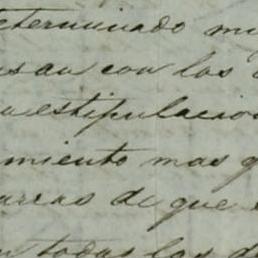 determinado
san con los
estipulacion
miento mas
arras de que
n todas los d